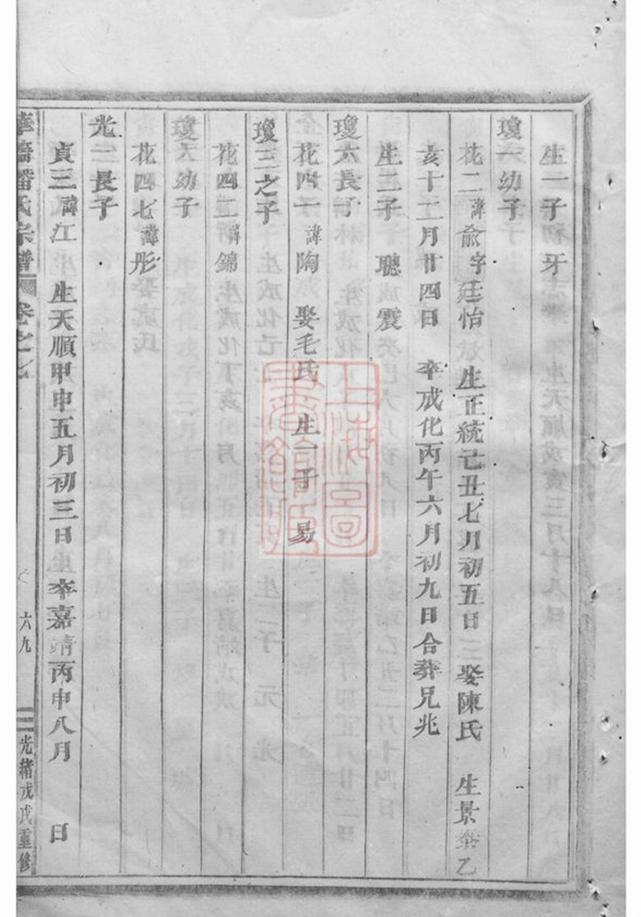 生一子初牙
瓊一幼子
花二諱俞字廷怡 生正統己丑七月初五日 娶陳氏 生景泰乙
亥十二月廿四日 卒成化丙午六月初九日合葬兄兆
生二子 聽 震
瓊六長子
花四一諱陶 娶毛氏 生一子 易
瓊三之子
花四二諱錦 生成化丁亥 月 生二子 元
瓊六幼子
花四七諱彤
光二長子
貢三諱江 生天順甲申五月初三日 卒嘉靖丙申八月 日
潘氏宗譜 卷之七 六九 光緒戊戌重修
上海圖書館藏